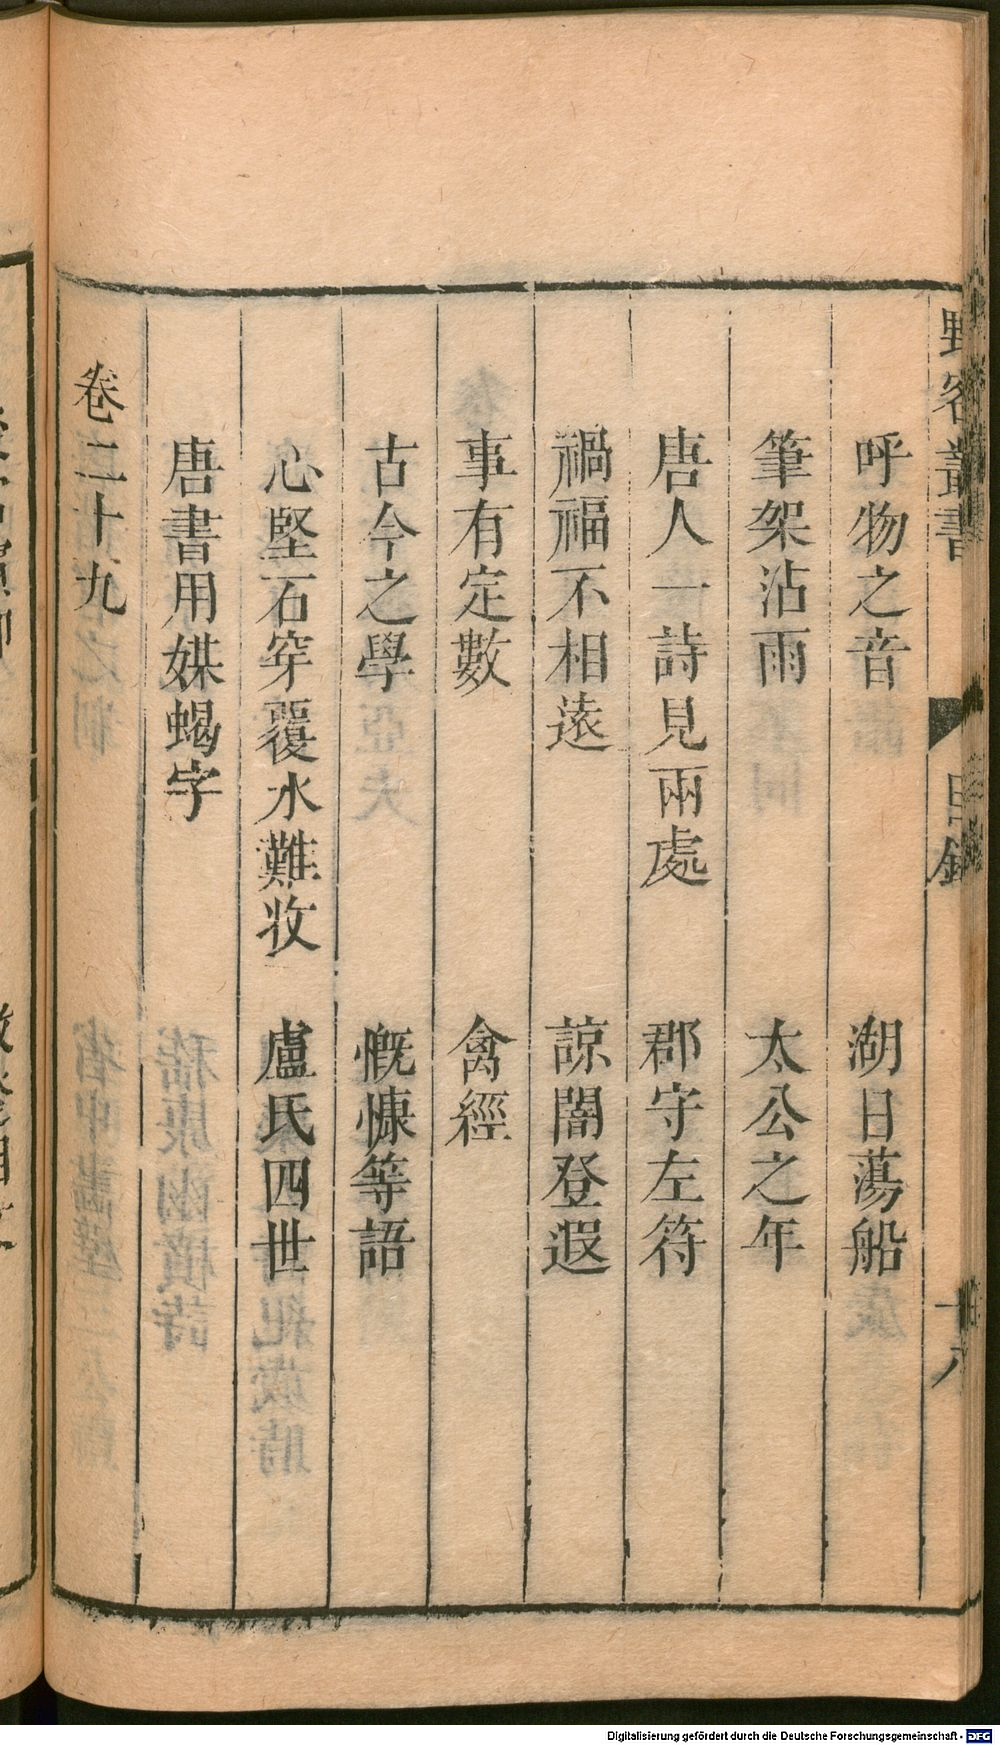 野客叢書 目錄 十八
呼物之音 湖日蕩船
筆架沾雨 太公之年
唐人一詩見兩處 郡守左符
禍福不相遠 諒闇登遐
事有定數 禽經
古今之學 慨慷等語
心堅石穿覆水難收 盧氏四世
唐書用媒蝎字
卷二十九
Digitalisierung gefördert durch die Deutsche Forschungsgemeinschaft - DFG